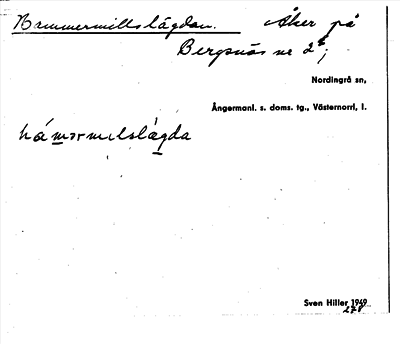 Bammermillslägdan. Åker på
Bergsnäs nr 2⁵;
Nordingrå sn,
Ångermanl. s. doms. tg., Västernorrl, l.
Sven Hiller 1949
278